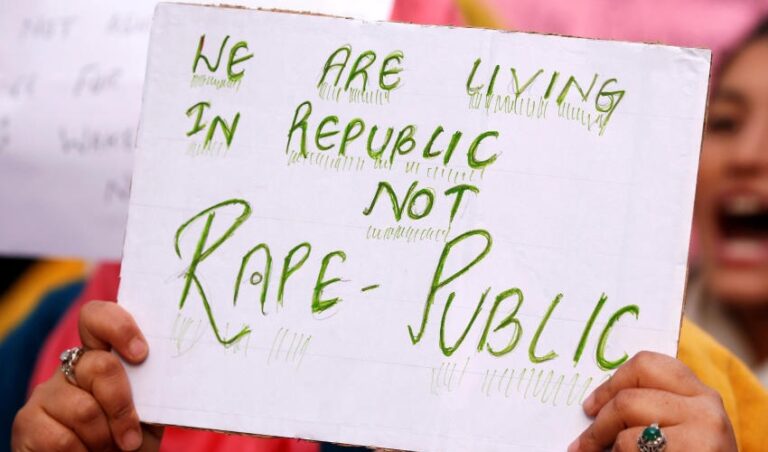 WE ARE LIVING
IN REPUBLIC
NOT
RAPE-PUBLIC
NOT
FOR